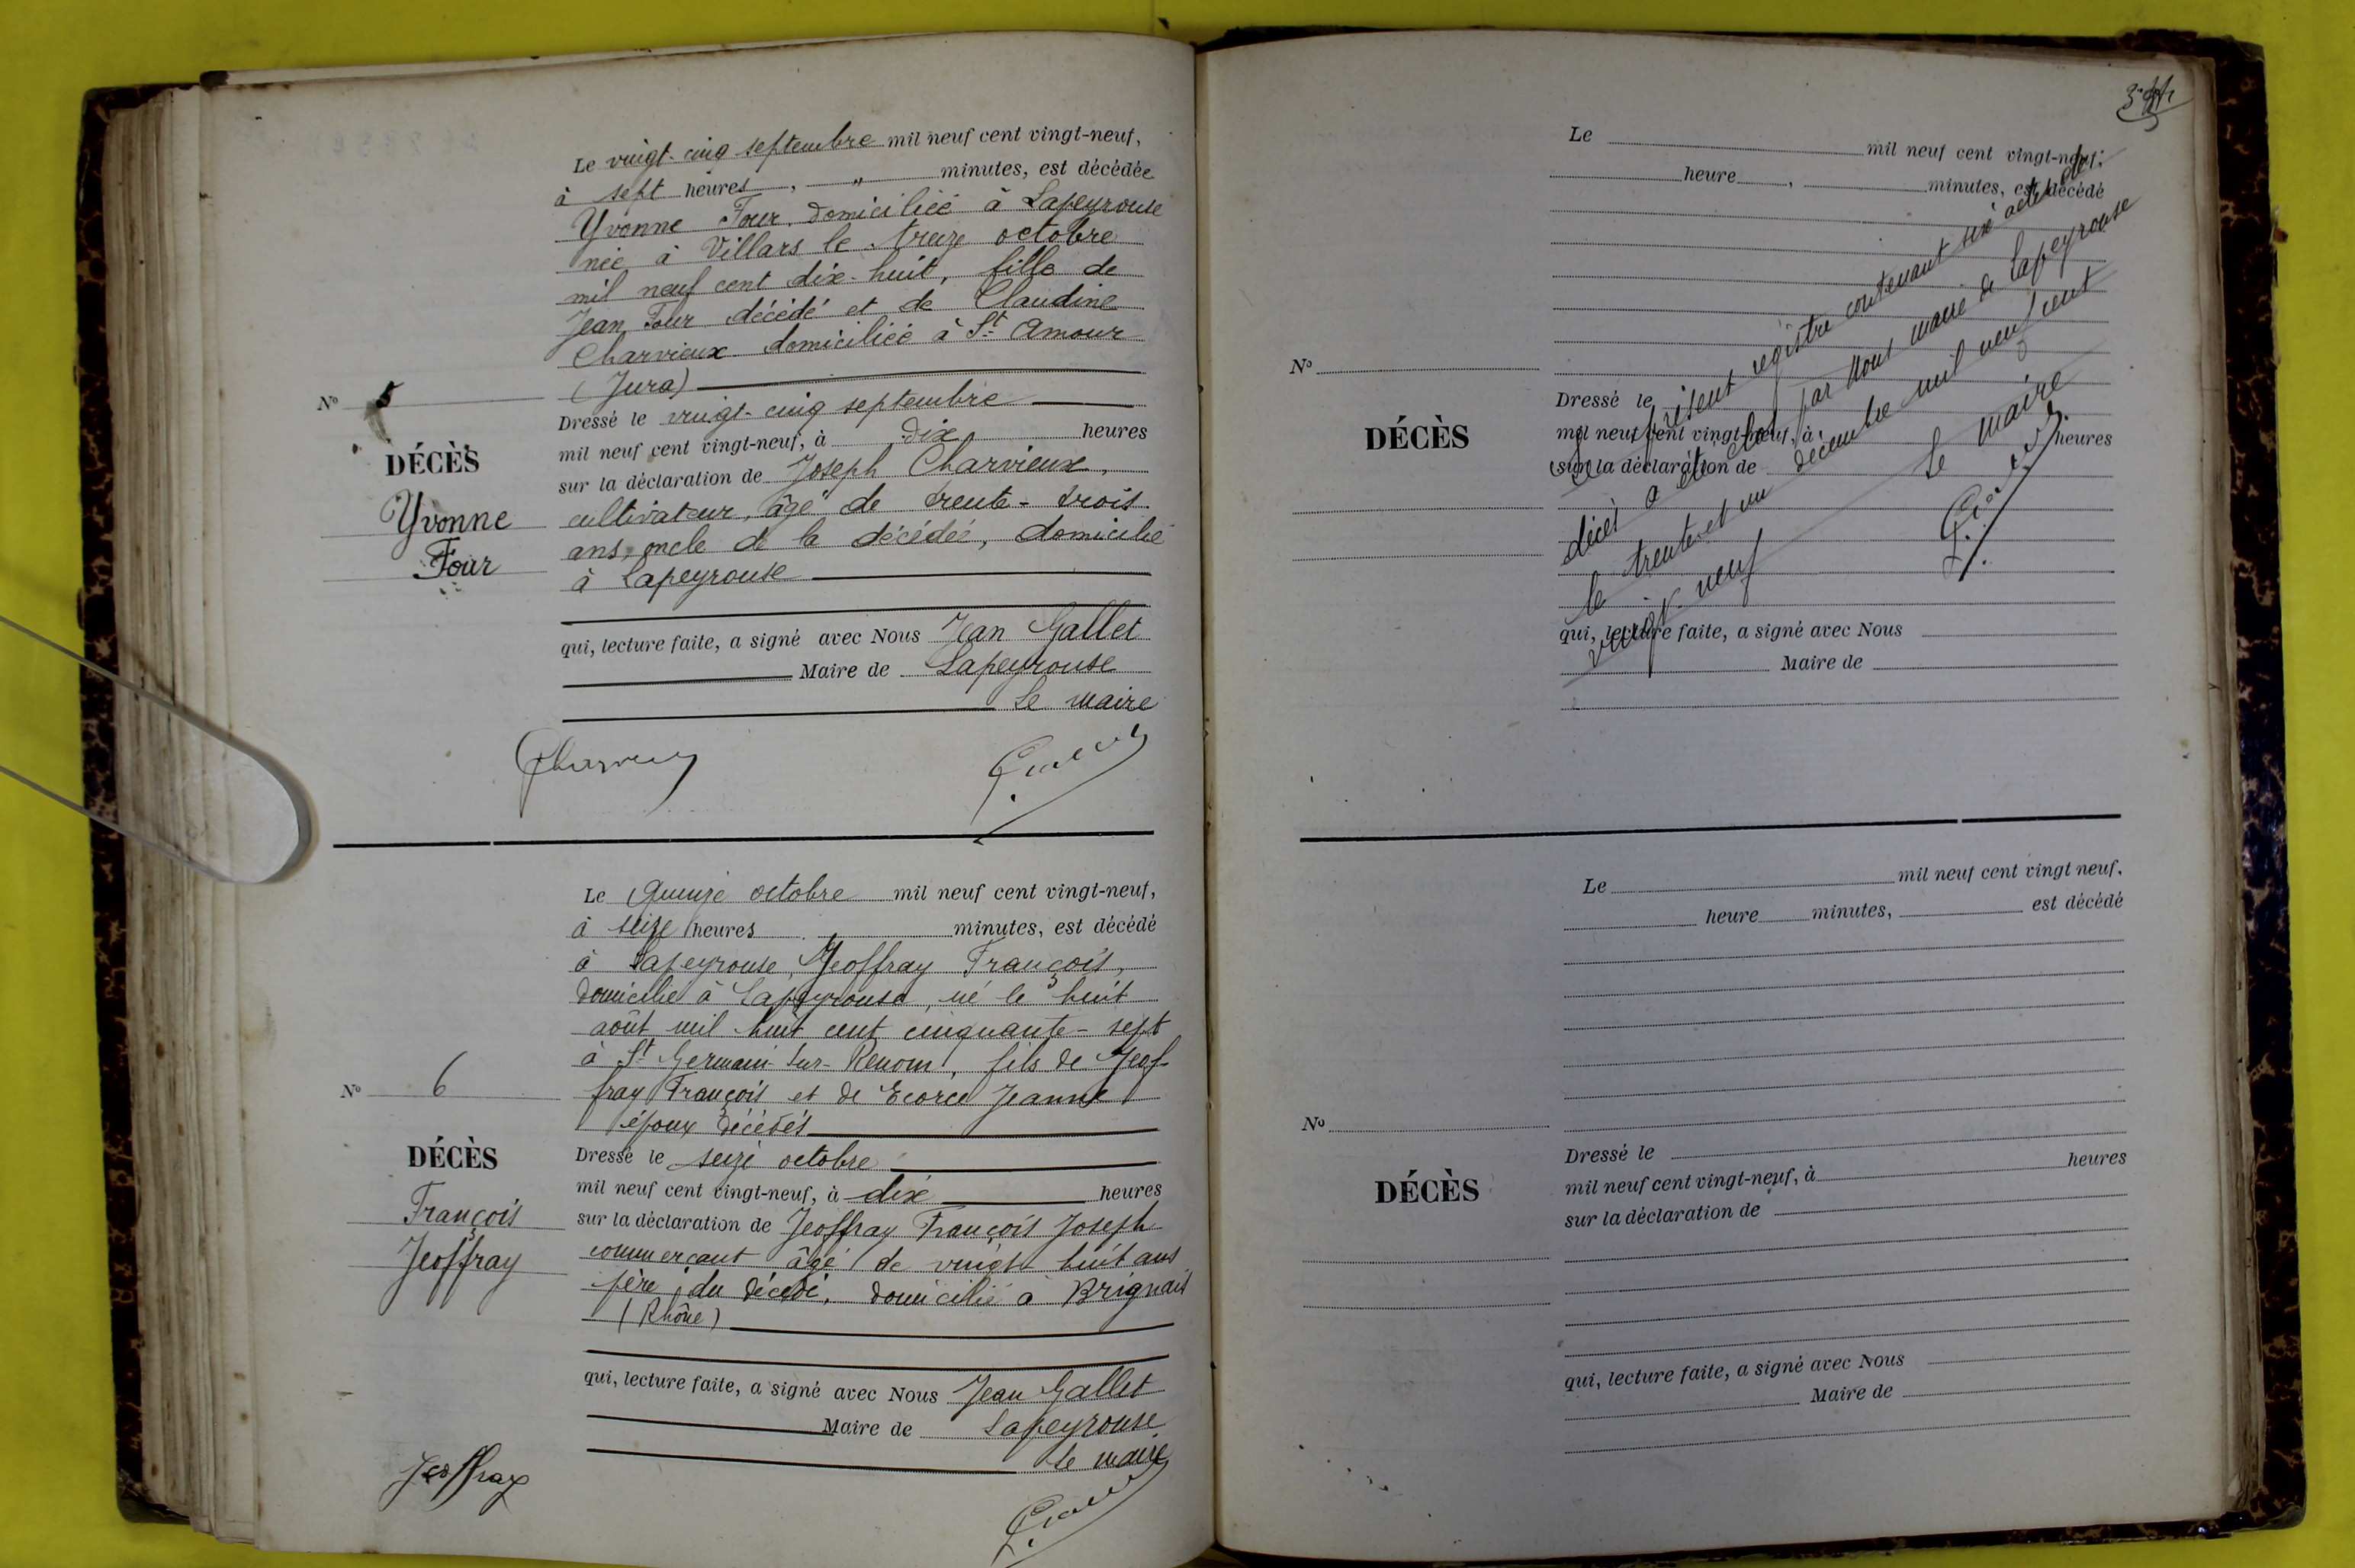 Le vingt-cinq septembre mil neuf cent vingt-neuf,
à sept heures, " minutes, est décédée
Yvonne Four, domiciliée à Lapeyrouse
née à Villars le treize octobre
mil neuf cent dix-huit, fille de
Jean Four décédé et de Claudine
Charvieux domiciliée à St Amour
(Jura)
Nº 5
DÉCÈS
Yvonne
Four
Dressé le vingt-cinq septembre
mil neuf cent vingt-neuf, à dix heures
sur la déclaration de Joseph Charvieux,
cultivateur, âgé de trente-trois
ans, oncle de la décédée, domicilié
à Lapeyrouse
qui, lecture faite, a signé avec Nous Jean Gallet
Maire de Lapeyrouse
Le maire
Le quinze octobre mil neuf cent vingt-neuf,
à seize heures minutes, est décédé
à Lapeyrouse, Jeoffray François,
domicilié à Lapeyrouse, né le huit
août mil huit cent cinquante-sept
à St Germain-sur-Renom, fils de Jeof-
fray François et de Ecorce Jeanne
époux décédés
Nº 6
DÉCÈS
François
Jeoffray
Dressé le seize octobre
mil neuf cent vingt-neuf, à dix heures
sur la déclaration de Jeoffray François Joseph
commerçant âgé de vingt huit ans
père du décédé, domicilié à Brignais
(Rhône)
qui, lecture faite, a signé avec Nous Jean Gallet
Maire de Lapeyrouse
Le maire
Jeoffray
Le mil neuf cent vingt-neuf,
heure, minutes, est décédé
Nº
DÉCÈS
Dressé le
mil neuf cent vingt-neuf, à heures
sur la déclaration de
qui, lecture faite, a signé avec Nous
Maire de
Le présent registre contenant six actes de
décès a été clos par Nous maire de Lapeyrouse
le trente et un décembre mil neuf cent
vingt-neuf
Le maire
Le mil neuf cent vingt neuf,
heure minutes, est décédé
Nº
DÉCÈS
Dressé le
mil neuf cent vingt-neuf, à heures
sur la déclaration de
qui, lecture faite, a signé avec Nous
Maire de